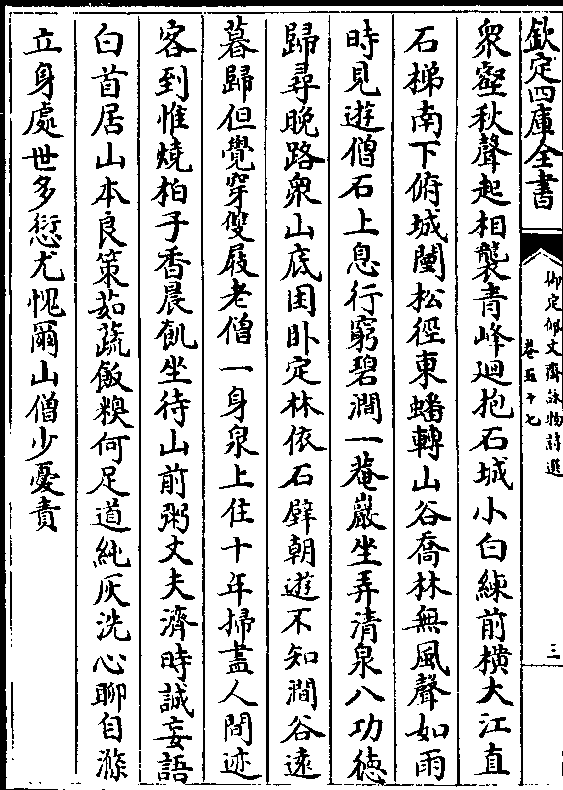 欽定四庫全書
御定佩文齋詠物詩選
卷五十七
三
衆壑秋聲起相襲青峰迴抱石城小白練前横大江直
石梯南下俯城闉松徑東蟠轉山谷喬林無風聲如雨
時見遊僧石上息行窮碧澗一菴巖坐弄清泉八功徳
歸尋晚路衆山底困卧定林依石壁朝遊不知澗谷逺
暮歸但覺穿雙屐老僧一身泉上住十年掃盡人間迹
客到惟燒柏子香晨飢坐待山前粥丈夫濟時誠妄語
白首居山本良策茹蔬飯糗何足道純灰洗心聊自滌
立身處世多愆尤愧爾山僧少憂責